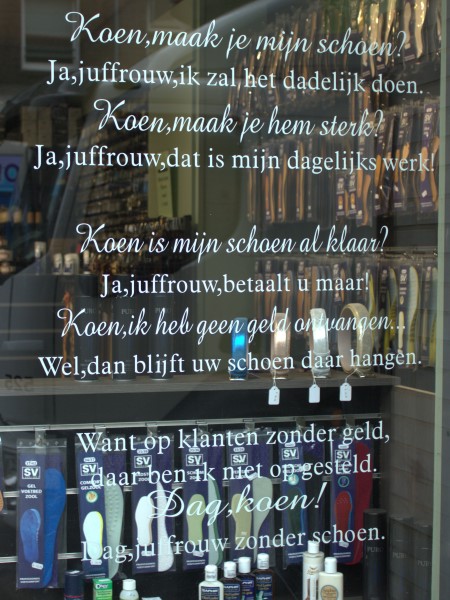 Koen,maak je mijn schoen?
Ja,juffrouw,ik zal het dadelijk doen.
Koen,maak je hem sterk?
Ja,juffrouw,dat is mijn dagelijks werk!
Koen is mijn schoen al klaar?
Ja,juffrouw,betaalt u maar!
Koen,ik heb geen geld ontvangen...
Wel,dan blijft uw schoen daar hangen.
Want op klanten zonder geld,
daar ben ik niet op gesteld.
Dag,koen!
Dag,juffrouw zonder schoen.
SV
SV
GEL
VOETBED
ZOOL